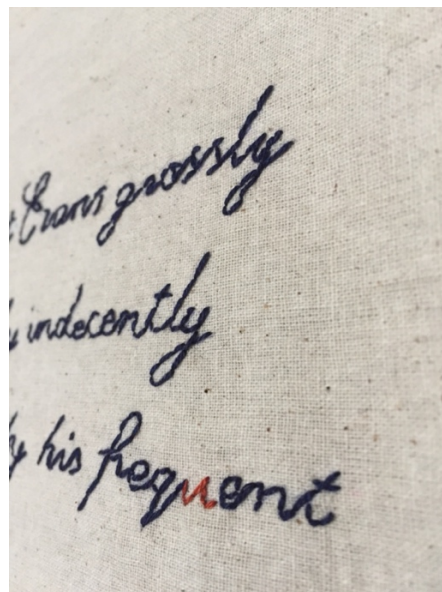 grossly
indecently
his frequent